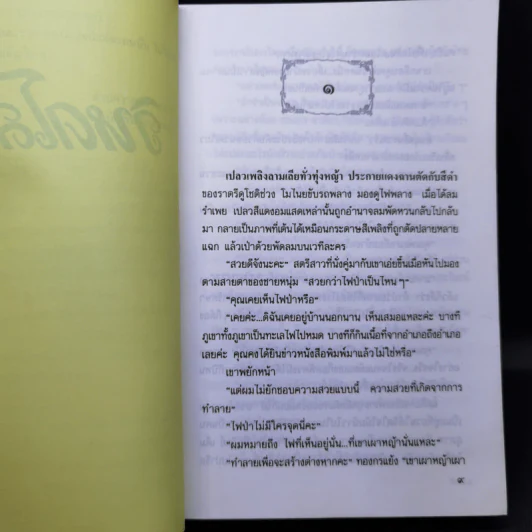 ๑
เปลวเพลิงลามเลียทั่วทุ่งหญ้า ประกายแดงฉานตัดกับสีดำ
ของราตรีดูโชติช่วง โมไนยขับรถพลาง มองดูไฟพลาง เมื่อได้ลม
รำเพย เปลวสีแดงอมแสดเหล่านั้นถูกอำนาจลมพัดหวนกลับไปกลับ
มา กลายเป็นภาพที่เต้นได้เหมือนกระดาษสีเพลิงที่ถูกตัดปลายหลาย
แฉก แล้วเป่าด้วยพัดลมบนเวทีละคร
"สวยดีจังนะคะ" สตรีสาวที่นั่งคู่มากับเขาเอ่ยขึ้นเมื่อหันไปมอง
ตามสายตาของชายหนุ่ม "สวยกว่าไฟป่าเป็นไหนๆ"
"คุณเคยเห็นไฟป่าหรือ"
"เคยค่ะ...ดิฉันเคยอยู่บ้านนอกนาน เห็นเสมอแหละค่ะ บางที
ภูเขาทั้งภูเขาเป็นทะเลไฟไปหมด บางทีก็กินเนื้อที่จากอำเภอถึงอำเภอ
เลยค่ะ คุณคงได้ยินข่าวหนังสือพิมพ์มาแล้วไม่ใช่หรือ"
เขาพยักหน้า
"แต่ผมไม่ยักชอบความสวยแบบนี้ ความสวยที่เกิดจากการ
ทำลาย"
"ไฟป่าไม่มีใครจุดนี่คะ"
"ผมหมายถึง ไฟที่เห็นอยู่นั่น...ที่เขาเผาหญ้านั่นแหละ"
"ทำลายเพื่อจะสร้างต่างหากคะ" ทองกวาแย้ง "เขาเผาหญ้าเผา